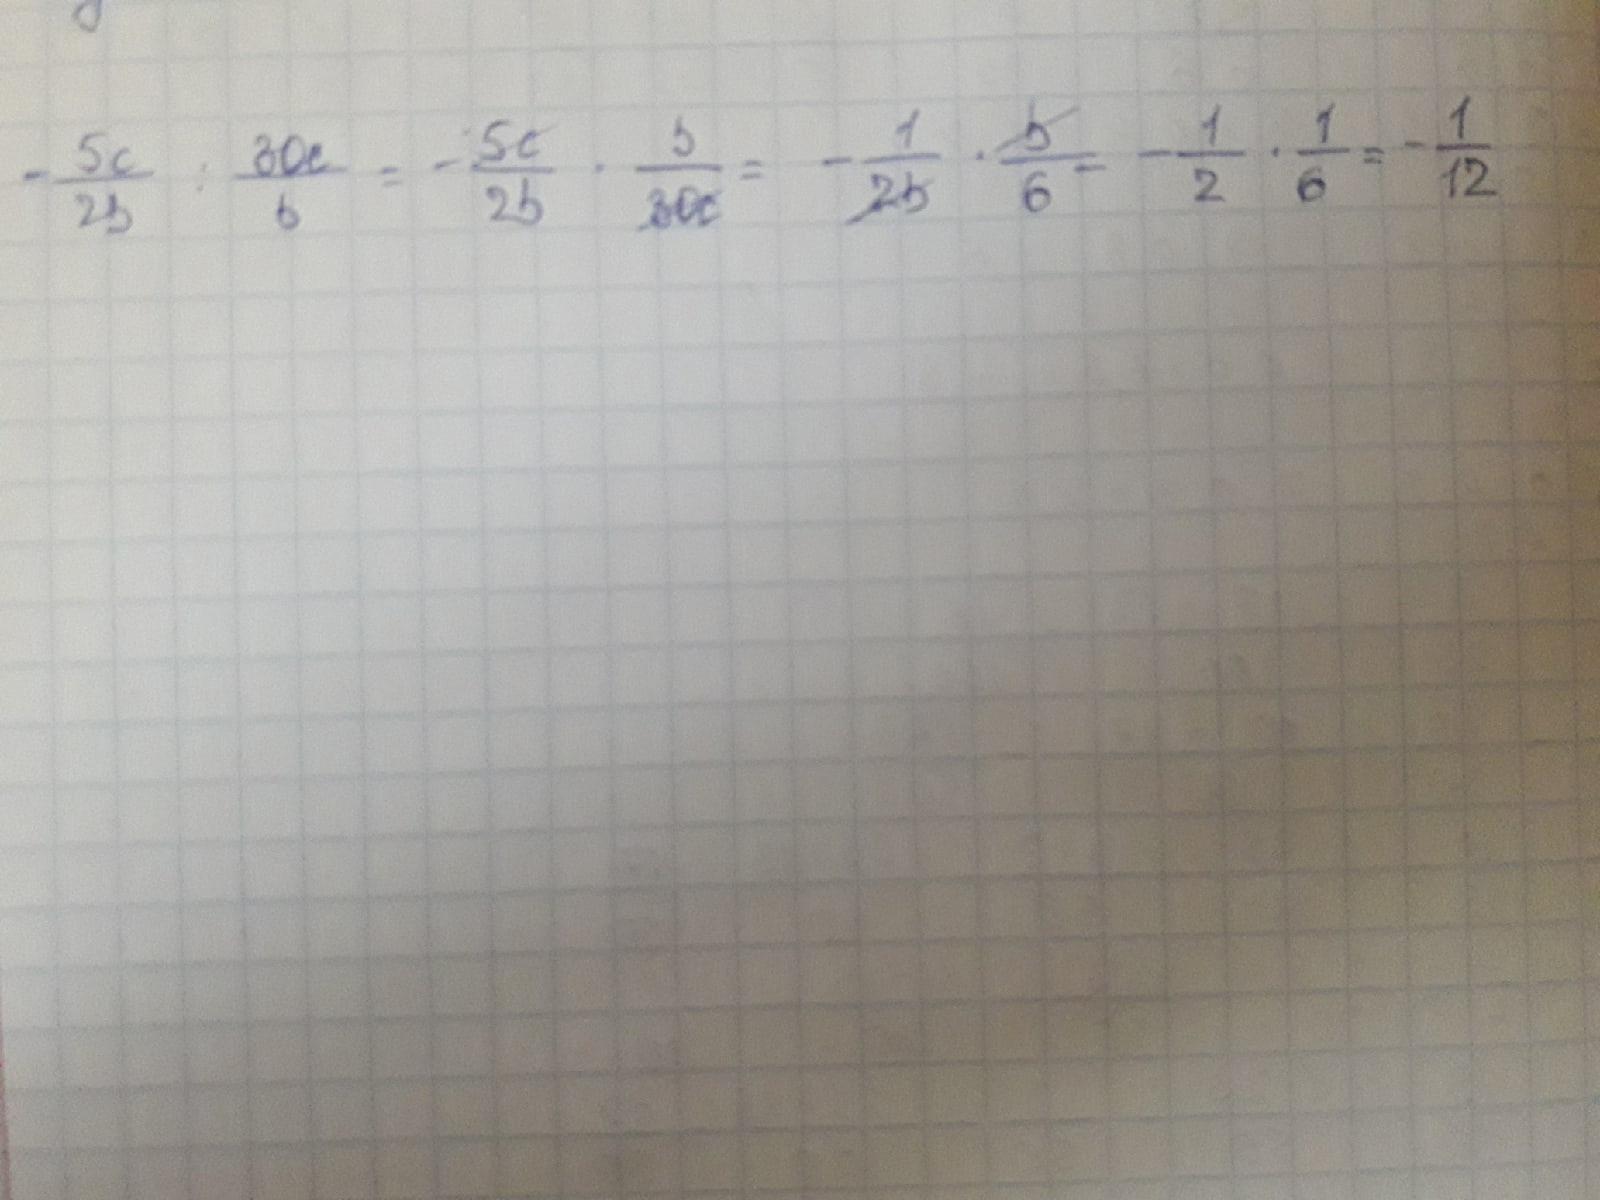 - 5c/2b : 30c/b = - 5c/2b · b/30c = - 1/2b · b/6 = - 1/2 · 1/6 = - 1/12